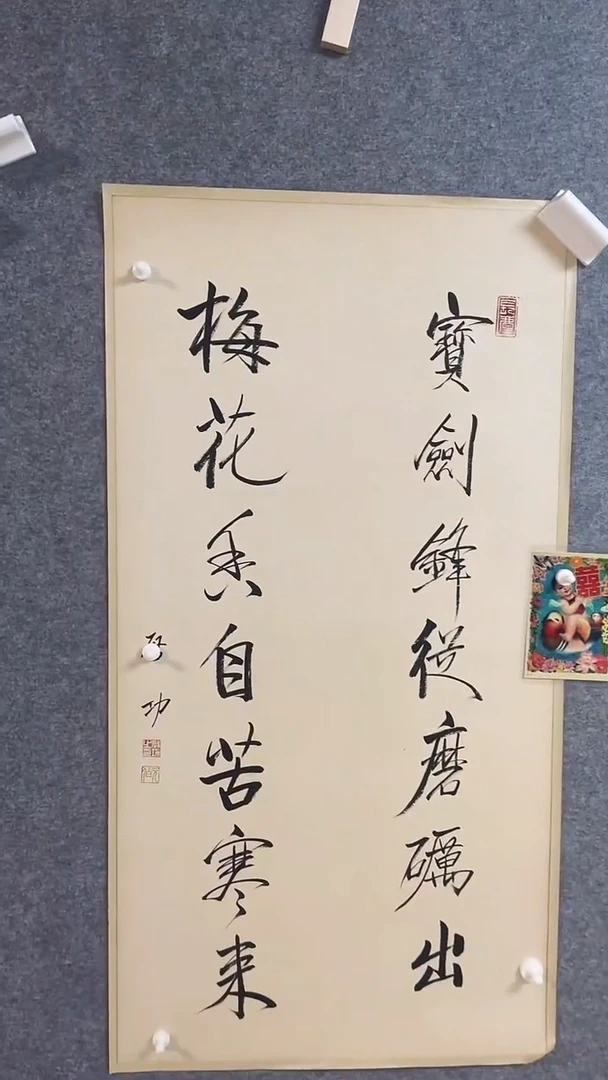 寶劍鋒從磨礪出
梅花香自苦寒来
启功
囍